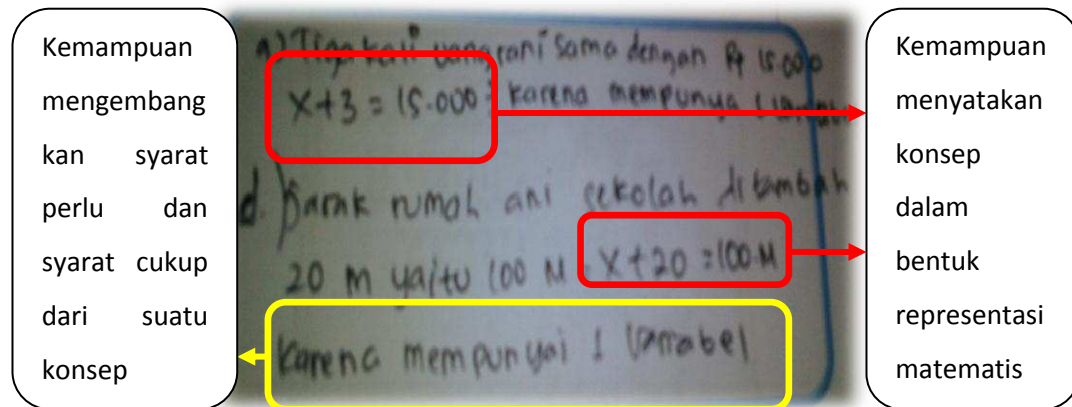 Kemampuan
mengembang
kan syarat
perlu dan
syarat cukup
dari suatu
konsep
a) Tiga kali uang rani sama dengan Rp 15.000
x+3 = 15.000 karena mempunya 1
d. Jarak rumah ani sekolah ditambah
20 m yaitu 100 M. x+20 = 100 M
karena mempunyai 1 variabel
Kemampuan
menyatakan
konsep
dalam
bentuk
representasi
matematis